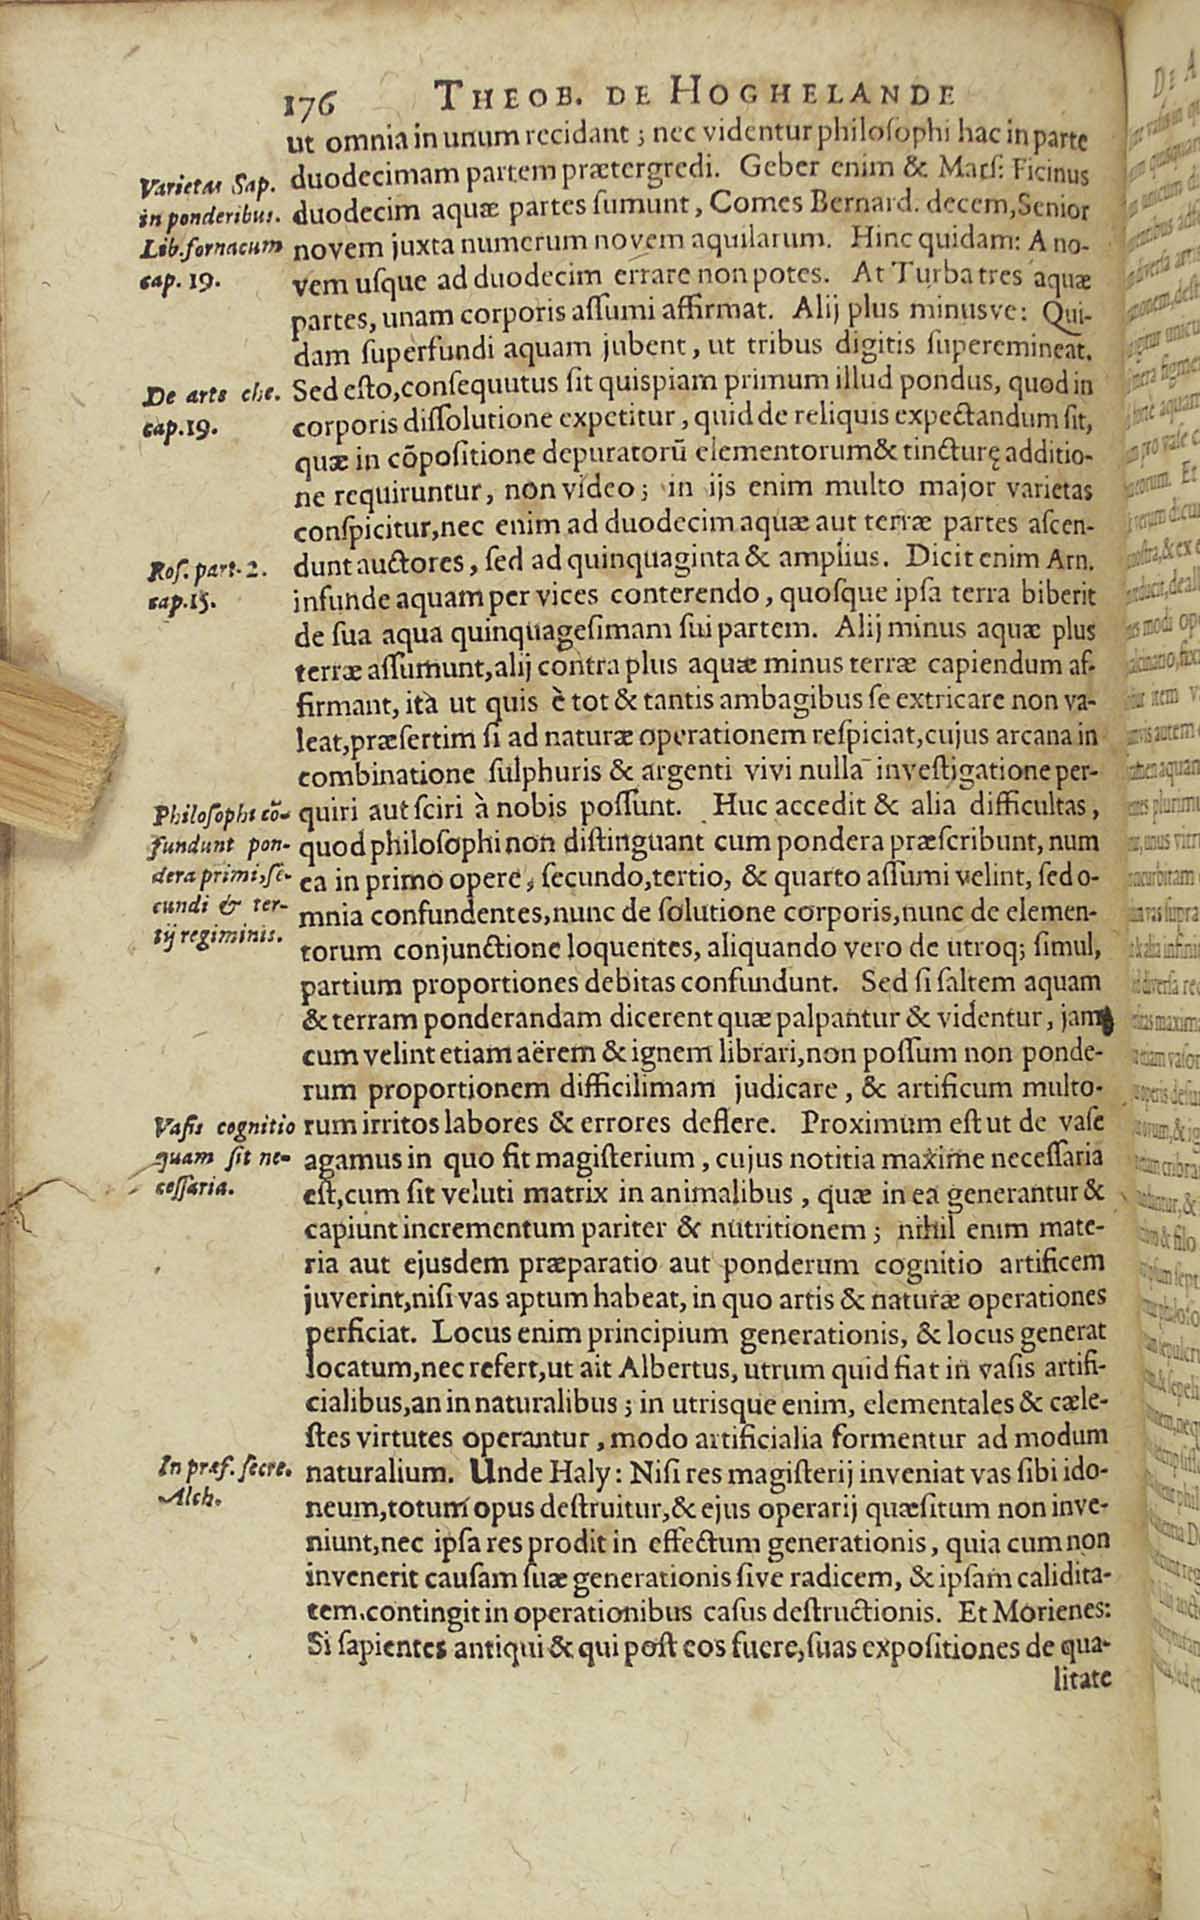 176 THEOB. DE HOGHELANDE
ut omnia in unum recidant; nec videntur philoſophi hac in parte
duodecimam partem prætergredi. Geber enim & Marſ: Ficinus
duodecim aquæ partes ſumunt, Comes Bernard. decem, Senior
novem juxta numerum novem aquilarum. Hinc quidam: A no-
vem uſque ad duodecim errare non potes. At Turba tres aquæ
partes, unam corporis aſſumi affirmat. Alij plus minusve: Qui-
dam ſuperfundi aquam jubent, ut tribus digitis ſuperemineat.
Sed eſto, conſequutus ſit quiſpiam primum illud pondus, quod in
corporis diſſolutione expetitur, quid de reliquis expectandum ſit,
quæ in cõpoſitione depuratorũ elementorum & tincturę additio-
ne requiruntur, non video; in ijs enim multo major varietas
conſpicitur, nec enim ad duodecim aquæ aut terræ partes aſcen-
dunt auctores, ſed ad quinquaginta & amplius. Dicit enim Arn.
infunde aquam per vices conterendo, quoſque ipſa terra biberit
de ſua aqua quinquageſimam ſui partem. Alij minus aquæ plus
terræ aſſumunt, alij contra plus aquæ minus terræ capiendum af-
firmant, ita ut quis è tot & tantis ambagibus ſe extricare non va-
leat, præſertim ſi ad naturæ operationem reſpiciat, cujus arcana in
combinatione ſulphuris & argenti vivi nulla inveſtigatione per-
quiri aut ſciri à nobis poſſunt. Huc accedit & alia difficultas,
quod philoſophi non diſtinguant cum pondera præſcribunt, num
ea in primo opere, ſecundo, tertio, & quarto aſſumi velint, ſed o-
mnia confundentes, nunc de ſolutione corporis, nunc de elemen-
torum conjunctione loquentes, aliquando vero de utroq; ſimul,
partium proportiones debitas confundunt. Sed ſi ſaltem aquam
& terram ponderandam dicerent quæ palpantur & videntur, jam
cum velint etiam aërem & ignem librari, non poſſum non ponde-
rum proportionem difficilimam judicare, & artificum multo-
rum irritos labores & errores deflere. Proximum eſt ut de vaſe
agamus in quo fit magiſterium, cujus notitia maxime neceſſaria
eſt, cum ſit veluti matrix in animalibus, quæ in ea generantur &
capiunt incrementum pariter & nutritionem; nihil enim mate-
ria aut ejusdem præparatio aut ponderum cognitio artificem
juverint, niſi vas aptum habeat, in quo artis & naturæ operationes
perficiat. Locus enim principium generationis, & locus generat
locatum, nec refert, ut ait Albertus, utrum quid fiat in vaſis artifi-
cialibus, an in naturalibus; in utrisque enim, elementales & cæle-
ſtes virtutes operantur, modo artificialia formentur ad modum
naturalium. Unde Haly: Niſi res magiſterij inveniat vas ſibi ido-
neum, totum opus deſtruitur, & ejus operarij quæſitum non inve-
niunt, nec ipſa res prodit in effectum generationis, quia cum non
invenerit cauſam ſuæ generationis ſive radicem, & ipſam calidita-
tem, contingit in operationibus caſus deſtructionis. Et Morienes:
Si ſapientes antiqui & qui poſt eos fuere, ſuas expoſitiones de qua-
litate
Varietas Sap.
in ponderibus.
Lib. fornacum
cap. 19.
De arte che.
cap. 19.
Roſ. part. 2.
cap. 15.
Philoſophi cõ-
fundunt pon-
dera primi, ſe-
cundi & ter-
tij regiminis.
Vaſis cognitio
quam ſit ne-
ceſſaria.
In præf. ſecre.
Alch.